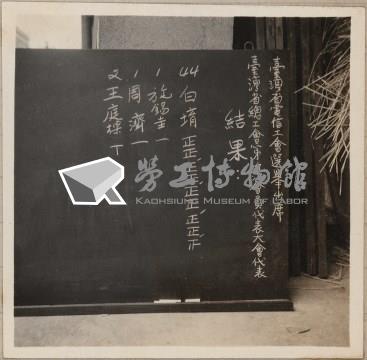 臺灣省電信工會選舉出席
臺灣省總工會第 會員代表大會代表
結果
44 白堉 正正正正正正正正正
1 施錫圭 一
1 周濟 一
2 王庭樑 丅
勞工博物館
KAOHSIUNG MUSEUM OF LABOR